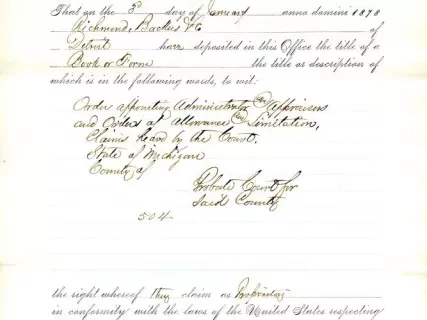 That on the 3d day of January anno domini 1878
Richmond, Backus & Co of
Detroit have deposited in this Office the title of a
Book or Form the title or description of
which is in the following words, to wit:
Order appointing Administrator or Appraisers
and Orders of Allowance or Limitation,
Claims heard by the Court.
State of Michigan
County of
Probate Court for
Said County
504
the right whereof they claim as Proprietors
in conformity with the laws of the United States respecting